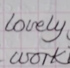 lovely
work